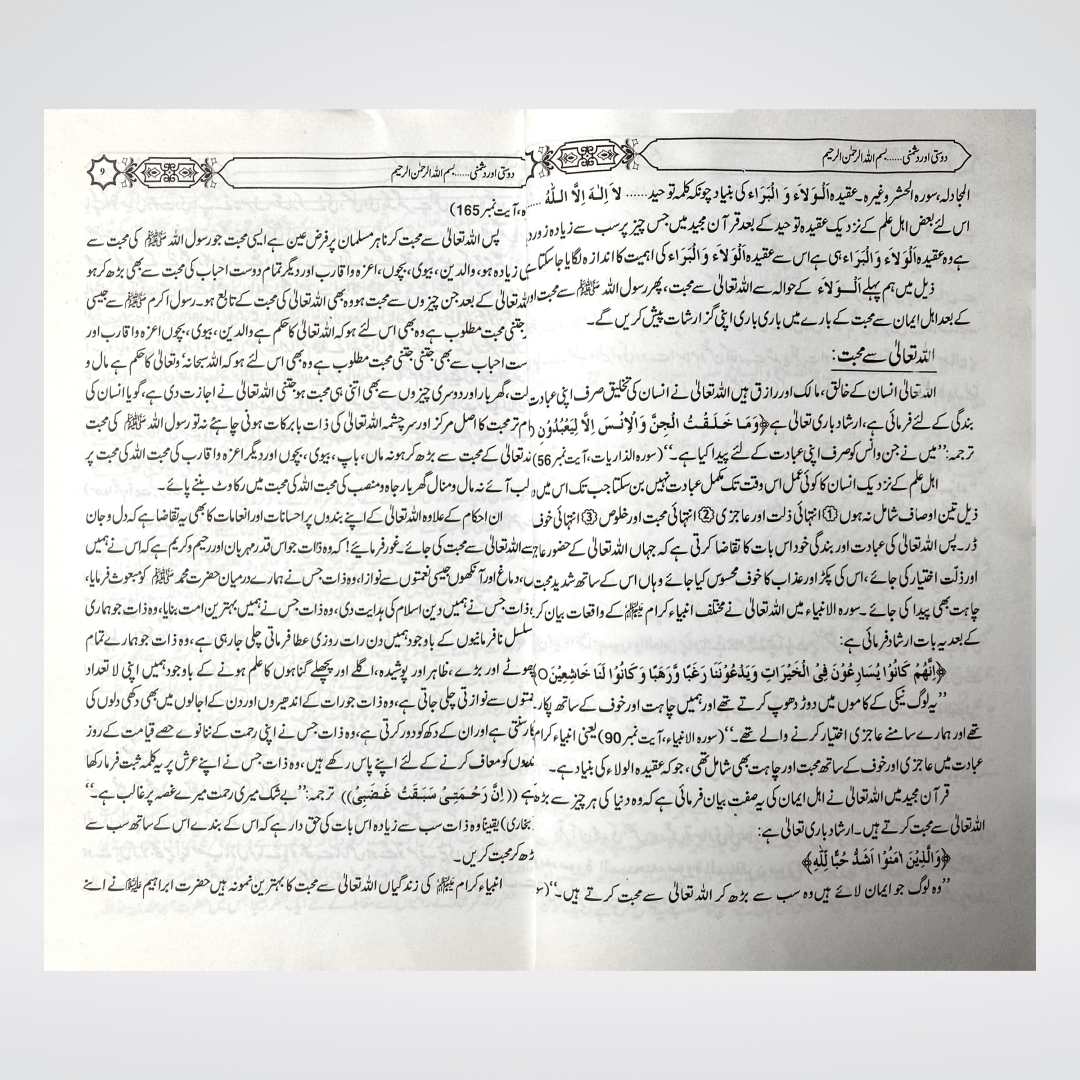 دوستی اور دشمنی......بسم اللہ الرحمٰن الرحیم
المجادلہ، سورہ الحشر وغیرہ۔ عقیدہ اَلْوَلاَء وَ الْبَرَاء کی بنیاد چونکہ کلمہ توحید...... لاَ اِلٰـہَ اِلَّا الـلّٰہُ ......
اس لئے بعض اہل علم کے نزدیک عقیدہ توحید کے بعد قرآن مجید میں جس چیز پر سب سے زیادہ زور
ہے وہ عقیدہ اَلْوَلاَء وَالْبَرَاء ہی ہے اس سے عقیدہ اَلْوَلاَء وَ الْبَرَاء کی اہمیت کا اندازہ لگایا جاسکتا
ذیل میں ہم پہلے اَلْـوَلاَء کے حوالہ سے اللہ تعالیٰ سے محبت، پھر رسول اللہ ﷺ سے محبت
کے بعد اہل ایمان سے محبت کے بارے میں باری باری اپنی گزارشات پیش کریں گے۔
اللہ تعالیٰ سے محبت:
اللہ تعالیٰ انسان کے خالق، مالک اور رازق ہیں اللہ تعالیٰ نے انسان کی تخلیق صرف اپنی عبادت
بندگی کے لئے فرمائی ہے، ارشاد باری تعالیٰ ہے ﴿وَمَا خَلَقْتُ الْجِنَّ وَالْاِنْسَ اِلَّا لِیَعْبُدُوْنِ
ترجمہ: ’’میں نے جن وانس کو صرف اپنی عبادت کے لئے پیدا کیا ہے۔‘‘ (سورہ الذاریات، آیت نمبر 56)
اہل علم کے نزدیک انسان کا کوئی عمل اس وقت تک مکمل عبادت نہیں بن سکتا جب تک اس میں
ذیل تین اوصاف شامل نہ ہوں ① انتہائی ذلت اور عاجزی ② انتہائی محبت اور خلوص ③ انتہائی خوف
ڈر۔ پس اللہ تعالیٰ کی عبادت اور بندگی خود اس بات کا تقاضا کرتی ہے کہ جہاں اللہ تعالیٰ کے حضور
اور ذلّت اختیار کی جائے، اس کی پکڑ اور عذاب کا خوف محسوس کیا جائے وہاں اس کے ساتھ شدید محبت
چاہت بھی پیدا کی جائے۔ سورہ الانبیاء میں اللہ تعالیٰ نے مختلف انبیاء کرام علیہم السلام کے واقعات بیان
کے بعد یہ بات ارشاد فرمائی ہے:
﴿اِنَّھُمْ کَانُوْا یُسَارِعُوْنَ فِی الْخَیْرَاتِ وَیَدْعُوْنَنَا رَغَبًا وَّرَھَبًا وَ کَانُوْا لَنَا خَاشِعِیْنَ○
’’یہ لوگ نیکی کے کاموں میں دوڑ دھوپ کرتے تھے اور ہمیں چاہت اور خوف کے ساتھ پکار
تھے اور ہمارے سامنے عاجزی اختیار کرنے والے تھے۔‘‘ (سورہ الانبیاء، آیت نمبر 90) یعنی انبیاء کرام
عبادت میں عاجزی اور خوف کے ساتھ محبت اور چاہت بھی شامل تھی، جو کہ عقیدہ الولاء کی بنیاد ہے۔
قرآن مجید میں اللہ تعالیٰ نے اہل ایمان کی یہ صفت بیان فرمائی ہے کہ وہ دنیا کی ہر چیز سے بڑھ
اللہ تعالیٰ سے محبت کرتے ہیں۔ ارشاد باری تعالیٰ ہے:
﴿وَالَّذِیْنَ اٰمَنُوْا اَشَدُّ حُبًّا لِّلّٰہِ﴾
’’وہ لوگ جو ایمان لائے ہیں وہ سب سے بڑھ کر اللہ تعالیٰ سے محبت کرتے ہیں۔‘‘
دوستی اور دشمنی......بسم اللہ الرحمٰن الرحیم
9
آیت نمبر 165)
پس اللہ تعالیٰ سے محبت کرنا ہر مسلمان پر فرض عین ہے ایسی محبت جو رسول اللہ ﷺ کی محبت سے
زیادہ ہو، والدین، بیوی، بچوں، اعزہ و اقارب اور دیگر تمام دوست احباب کی محبت سے بھی بڑھ کر ہو
اللہ تعالیٰ کے بعد جن چیزوں سے محبت ہو وہ بھی اللہ تعالیٰ کی محبت کے تابع ہو۔ رسول اکرم ﷺ سے جیسی
جتنی محبت مطلوب ہے وہ بھی اس لئے ہو کہ اللہ تعالیٰ کا حکم ہے والدین، بیوی، بچوں اعزہ واقارب اور
احباب سے بھی جتنی جتنی محبت مطلوب ہے وہ بھی اس لئے ہو کہ اللہ سبحانہٗ وتعالیٰ کا حکم ہے مال و
گھر بار اور دوسری چیزوں سے بھی اتنی ہی محبت ہو جتنی اللہ تعالیٰ نے اجازت دی ہے، گویا انسان کی
تر محبت کا اصل مرکز اور سرچشمہ اللہ تعالیٰ کی ذات بابرکات ہونی چاہئے نہ تو رسول اللہ ﷺ کی محبت
تعالیٰ کے محبت سے بڑھ کر ہو نہ ماں، باپ، بیوی، بچوں اور دیگر اعزہ واقارب کی محبت اللہ کی محبت پر
آئے نہ مال ومنال گھر بار جاہ و منصب کی محبت اللہ کی محبت میں رکاوٹ بننے پائے۔
ان احکام کے علاوہ اللہ تعالیٰ کے اپنے بندوں پر احسانات اور انعامات کا بھی یہ تقاضا ہے کہ دل و جان
سے اللہ تعالیٰ سے محبت کی جائے۔ غور فرمایئے! کہ وہ ذات جو اس قدر مہربان اور رحیم وکریم ہے کہ اس نے ہمیں
دماغ اور آنکھوں جیسی نعمتوں سے نوازا، وہ ذات جس نے ہمارے درمیان حضرت محمد ﷺ کو مبعوث فرمایا،
ذات جس نے ہمیں دین اسلام کی ہدایت دی، وہ ذات جس نے ہمیں بہترین امت بنایا، وہ ذات جو ہماری
نافرمانیوں کے باوجود ہمیں دن رات روزی عطا فرماتی چلی جا رہی ہے، وہ ذات جو ہمارے تمام
اور بڑے، ظاہر اور پوشیدہ، اگلے اور پچھلے گناہوں کا علم ہونے کے باوجود ہمیں اپنی لا تعداد
سے نوازتی چلی جاتی ہے، وہ ذات جو رات کے اندھیروں اور دن کے اجالوں میں بھی دکھی دلوں کی
سنتی ہے اور ان کے دکھ کو دور کرتی ہے، وہ ذات جس نے اپنی رحمت کے ننانوے حصے قیامت کے روز
کو معاف کرنے کے لئے اپنے پاس رکھے ہیں، وہ ذات جس نے اپنے عرش پر یہ کلمہ ثبت فرما رکھا
ہے ((اِنَّ رَحْـمَتِـیْ سَبَقَتْ غَـضَبِیْ)) ترجمہ: ’’بے شک میری رحمت میرے غصہ پر غالب ہے۔‘‘
بخاری) یقیناً وہ ذات سب سے زیادہ اس بات کی حق دار ہے کہ اس کے بندے اس کے ساتھ سب سے
کر محبت کریں۔
انبیاء کرام علیہم السلام کی زندگیاں اللہ تعالیٰ سے محبت کا بہترین نمونہ ہیں حضرت ابراہیم علیہ السلام نے اپنے